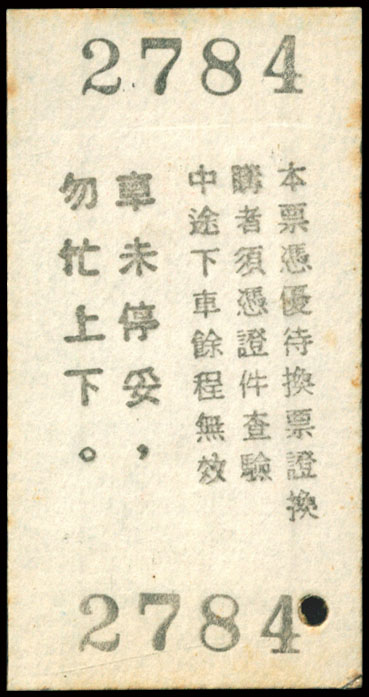 2784
本票憑優待換票證換
購者須憑證件查驗
中途下車餘程無效
車未停妥，
勿忙上下。
2784